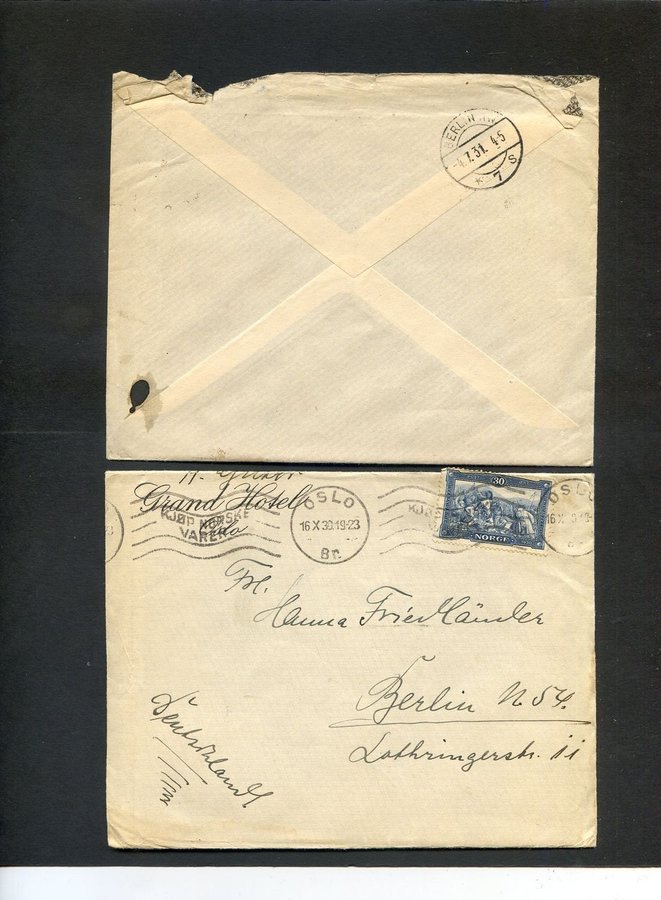 BERLIN NW
-4.7.31. 4-5
* 7 S
Grand Hotel
Oslo
KJØP NORSKE
VARER
OSLO
16 X 30.19-23
Br.
30
NORGE
OSLO
Frl.
Hanna Friedländer
Berlin N 54.
Lothringerstr. 11
Deutschland